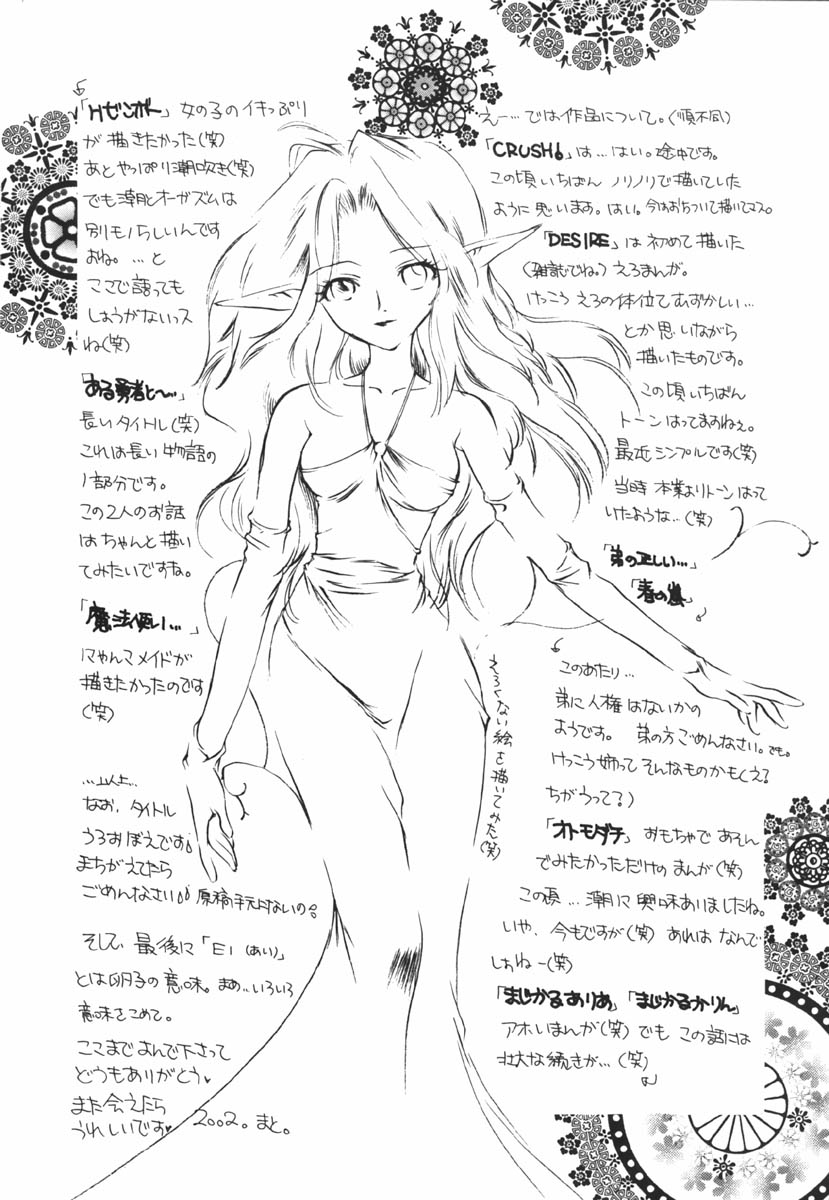 えー…では作品について。(順不同)
「CRUSH!」は…はい。途中です。
この頃いちばん ノリノリで描いていた
ように思います。はい。今はおちついて描いてマス。
「DESIRE」は初めて描いた
(雑誌でね。)えろまんが。
けっこう えろの体位てむずかしい…
とか思いながら
描いたものです。
この頃いちばん
トーンはってますねぇ。
最近シンプルです(笑)
当時 本業よりトーンはって
いたような…(笑)
「弟の正しい…」
「春の嵐」
このあたり…
弟に人権はないかの
ようです。 弟の方ごめんなさい。でも。
けっこう姉って そんなものかもよ?
ちがうって?)
「オトモダチ」 おもちゃであそん
でみたかっただけのまんが(笑)
この頃…潮に興味ありましたね。
いや、今もですが(笑) あれは なんで
しょねー(笑)
「まじかるありあ」「まじかるかりん」
アホいまんが(笑) でも この話には
壮大な続きが…(笑)
えろくない絵を描いてみた(笑)
「Hゼンボー」 女の子のイキっぷり
が描きたかった(笑)
あとやっぱり潮吹き(笑)
でも潮とオーガズムは
別モノらしいんです
よね。…と
ここで語っても
しょうがないっス
ね(笑)
「ある勇者と〜…」
長いタイトル(笑)
これは長い物語の
1部分です。
この2人のお話
はちゃんと描い
てみたいですね。
「魔法使い…」
にゃんこメイドが
描きたかったのです
(笑)
…以上…
なお、タイトル
うろおぼえです。
まちがえてたら
ごめんなさい。 原稿手元にないの。
そして、最後に「EI(あい)」
とは卵子の意味。まぁ…いろいろ
意味をこめて。
ここまでよんで下さって
どうもありがとう♥
また会えたら
うれしいです♥ 2002。まと。